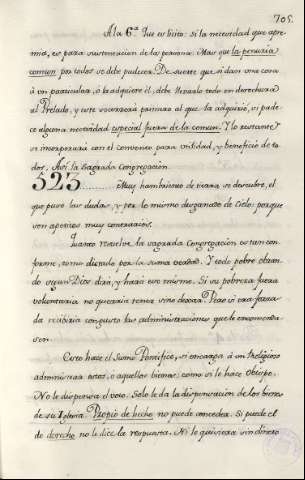 705.
A la 6.ª Que es licito: si la necesidad que apre-
mia, es para sustentacion de la persona. Mas que la penuria
comun por todos se debe padecer. De suerte que si dan una cosa
à un particular, ò la adquiere èl, debe llevarlo todo en derechura
al Prelado, y este socorrerà primero al que la adquiriò, si pade-
ce alguna necesidad especial fuera de la comun. Y lo restante
se incorporarà con el convento para utilidad, y beneficio de to-
dos. Asi la Sagrada Congregacion
523 Muy hambriento de tierra se descubre, el
que puso las dudas y por lo mismo desganado de cielo: porque
son apetitos muy contrarios.
Quanto resuelve la sagrada Congregacion es tan con-
forme, como dictado por la suma verdad. Y todo pobre obran-
do segun Dios dirà, y harà eso mismo. Si su pobreza fuera
voluntaria no querria tener sino dexar. Pero si era forzada
recibiria con gusto las administraciones que le encomenda-
sen.
Esto hace el Sumo Pontifice, si encarga à un Religioso
administrar estos, ò aquellos bienes: como si le hace Obispo.
No le dispensa el voto. Solo le da la dispensacion de los bienes
de su Iglesia. Propio de hecho no puede conceder. Si puede el
de derecho no le dice la respuesta. Ni le quisiera sin dinero